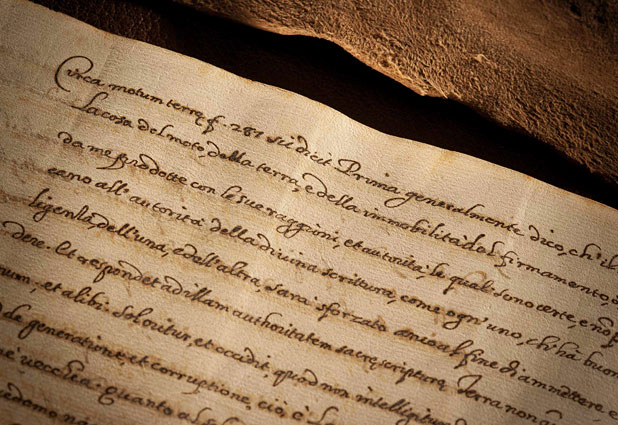 Circa motum terrę f. 281 sic dicit Prima generalmente dico, ch'il
la cosa del moto, della terra, e della immobilità del firmamento
da me prodotte con le sue raggioni, et autorità, le quali sono certe, e nō p
cano all'autorità della divina scrittura, come ogn'uno, ch'ha buon
ligenza, dell'una, e dell'altra, sarà sforzato anco al fine di ammettere e
dere. Et respondet ad illam authoritatem sacrę scripturę, Terra non
rum, et alibi. Sol oritur, et occidit, quod non intelligitur
de generatione, et corruptione, ciò è
vecchia: quanto al sole